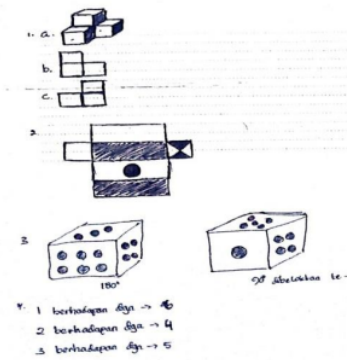 1. a.
b.
c.
2.
3
180°
90° dibelokkan ke-
4. 1 berhadapan dgn → 6
2 berhadapan dgn → 4
3 berhadapan dgn → 5